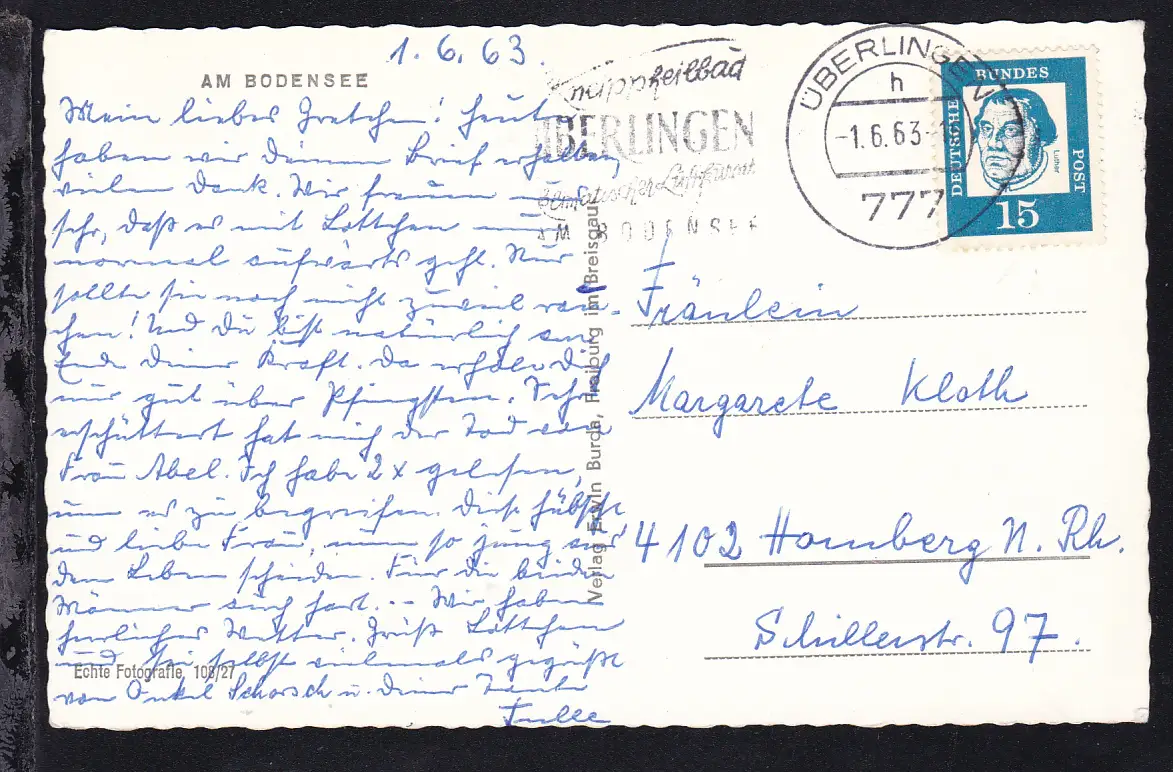 1. 6. 63.
AM BODENSEE
Mein liebes Gretchen! Heute
haben wir Deinen Brief erhalten,
vielen Dank. Wir freuen uns
sehr, daß es mit Lottchen nun
normal aufwärts geht. Nur
sollte sie noch nicht zuviel rau-
chen! Und Du bist natürlich am
Ende Deiner Kraft. Da erhole Dich
nur gut über Pfingsten. Sehr
erschüttert hat mich der Tod von
Frau Abel. Ich habe 2x gelesen,
um es zu begreifen. Diese hübsche
und liebe Frau, nun so jung aus
dem Leben scheiden. Für die beiden
Männer auch hart. -- Wir haben
herrliches Wetter. Grüß Lottchen
und sei selbst vielmals gegrüßt
von Onkel Schorsch u. Deiner Tante
Tulle
Echte Fotografie, 108/27
Verlag Erwin Burda, Freiburg im Breisgau
Kneippheilbad
ÜBERLINGEN
Klimatischer Luftkurort
AM BODENSEE
ÜBERLINGEN
h
-1.6.63-
777
DEUTSCHE BUNDES POST
Luther
15
Fräulein
Margarete Kloth
4102 Homberg N. Rh.
Schillerstr. 97.